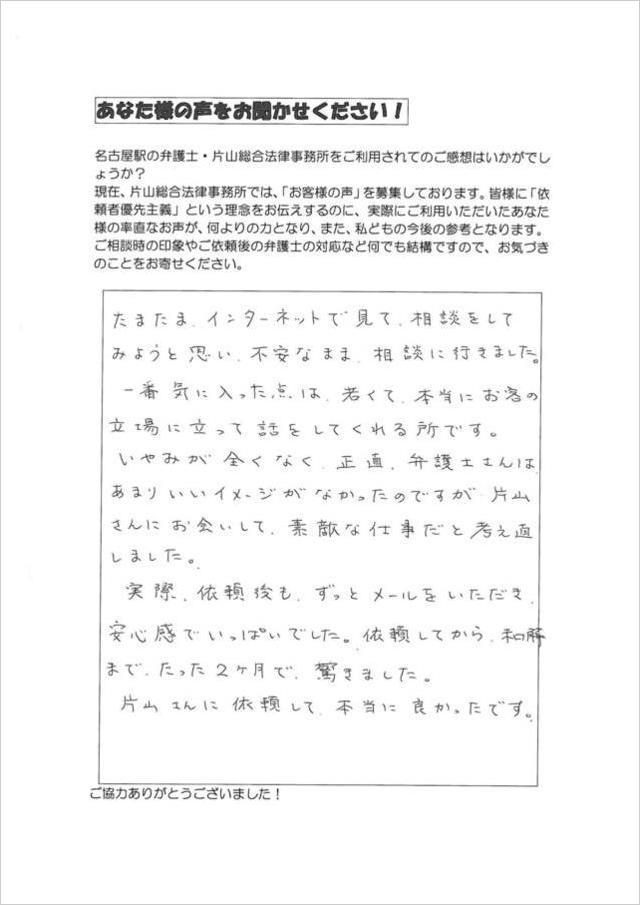 あなた様の声をお聞かせください！
名古屋駅の弁護士・片山総合法律事務所をご利用されてのご感想はいかがでし
ょうか？
現在、片山総合法律事務所では、「お客様の声」を募集しております。皆様に「依
頼者優先主義」という理念をお伝えするのに、実際にご利用いただいたあなた
様の率直なお声が、何よりの力となり、また、私どもの今後の参考となります。
ご相談時の印象やご依頼後の弁護士の対応など何でも結構ですので、お気づき
のことをお寄せください。
たまたま、インターネットで見て、相談をして
みようと思い、不安なまま、相談に行きました。
一番気に入った点は、若くて、本当にお客の
立場に立って話をしてくれる所です。
いやみが全くなく、正直、弁護士さんは
あまりいいイメージがなかったのですが、片山
さんにお会いして、素敵な仕事だと考え直
しました。
実際、依頼後も、ずっとメールをいただき、
安心感でいっぱいでした。依頼してから、和解
まで、たった2ヶ月で、驚きました。
片山さんに依頼して、本当に良かったです。
ご協力ありがとうございました！